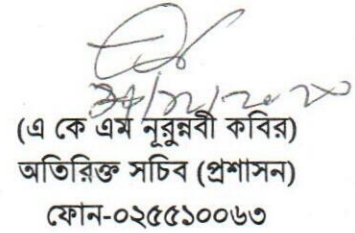 (এ কে এম নূরুন্নবী কবির)
অতিরিক্ত সচিব (প্রশাসন)
ফোন-০২৫৫১০০৬৩